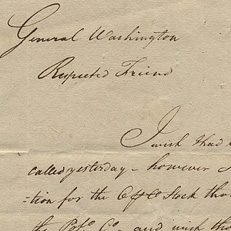 General Washington
Respected Friend
I wish thad
called yesterday – however
=tion for the C&O Stock tho
the Poto. Co. and wish tho